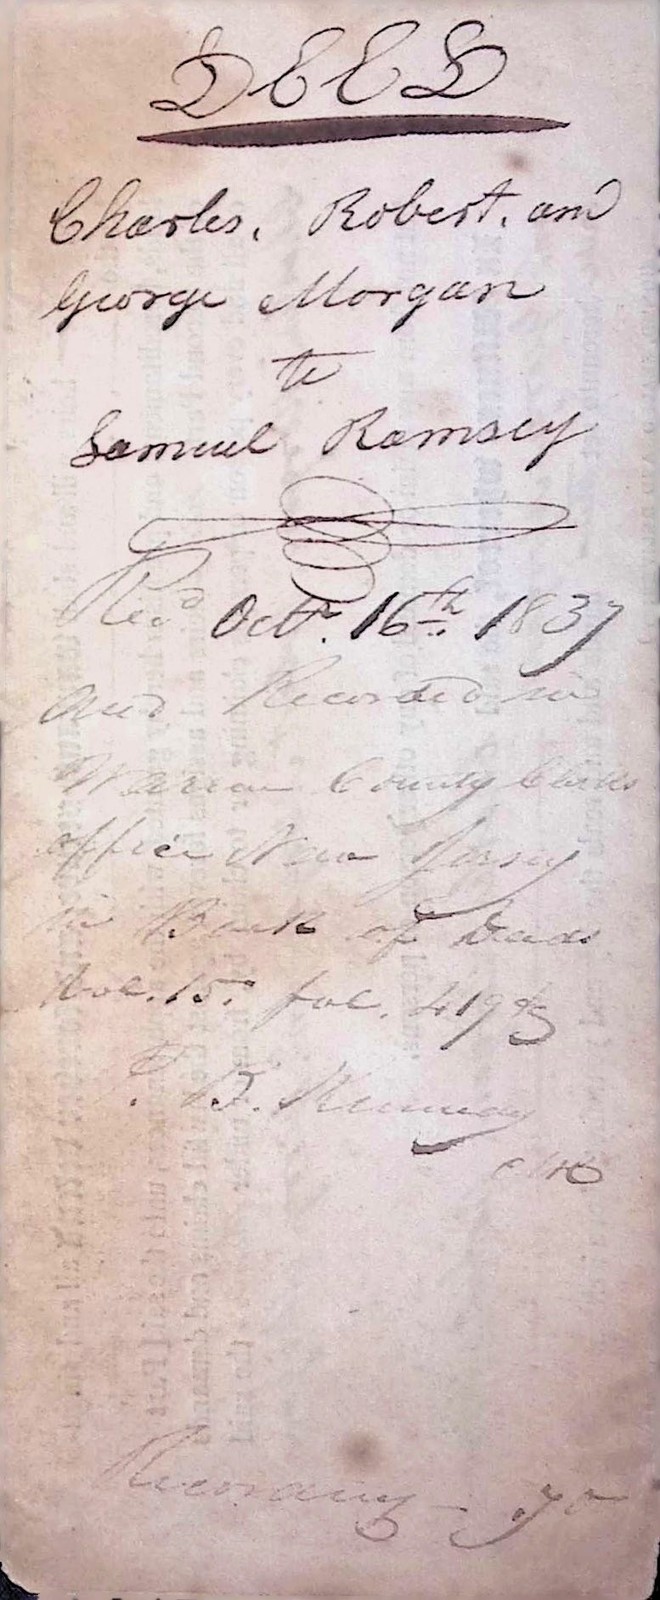 DEED
Charles, Robert, and
George Morgan
to
Samuel Ramsey
Rec'd Octr. 16th 1837
and Recorded in
Warren County Clerks
office New Jersey
in Book of Deeds
Vol. 15. fol. 419 &
P. B. Kennedy
clk
Recording